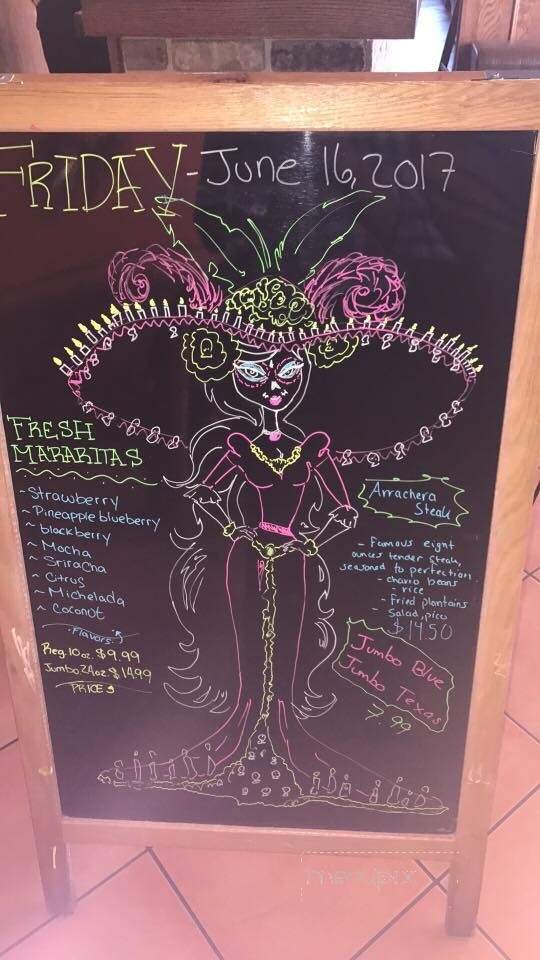 FRIDAY - June 16, 2017
FRESH
MARARITAS
- Strawberry
~ Pineapple blueberry
~ blackberry
~ Mocha
~ Sriracha
~ Citrus
~ Michelada
~ Coconut
Flavors
Reg. 10 oz. $9.99
Jumbo 24oz $14.99
PRICES
Arrachera
Steak
- Famous eight
ounces tender steak,
seasoned to perfection
- charro beans
- rice
- Fried plantains
- Salad, pico
$14.50
Jumbo Blue
Jumbo Texas
7.99